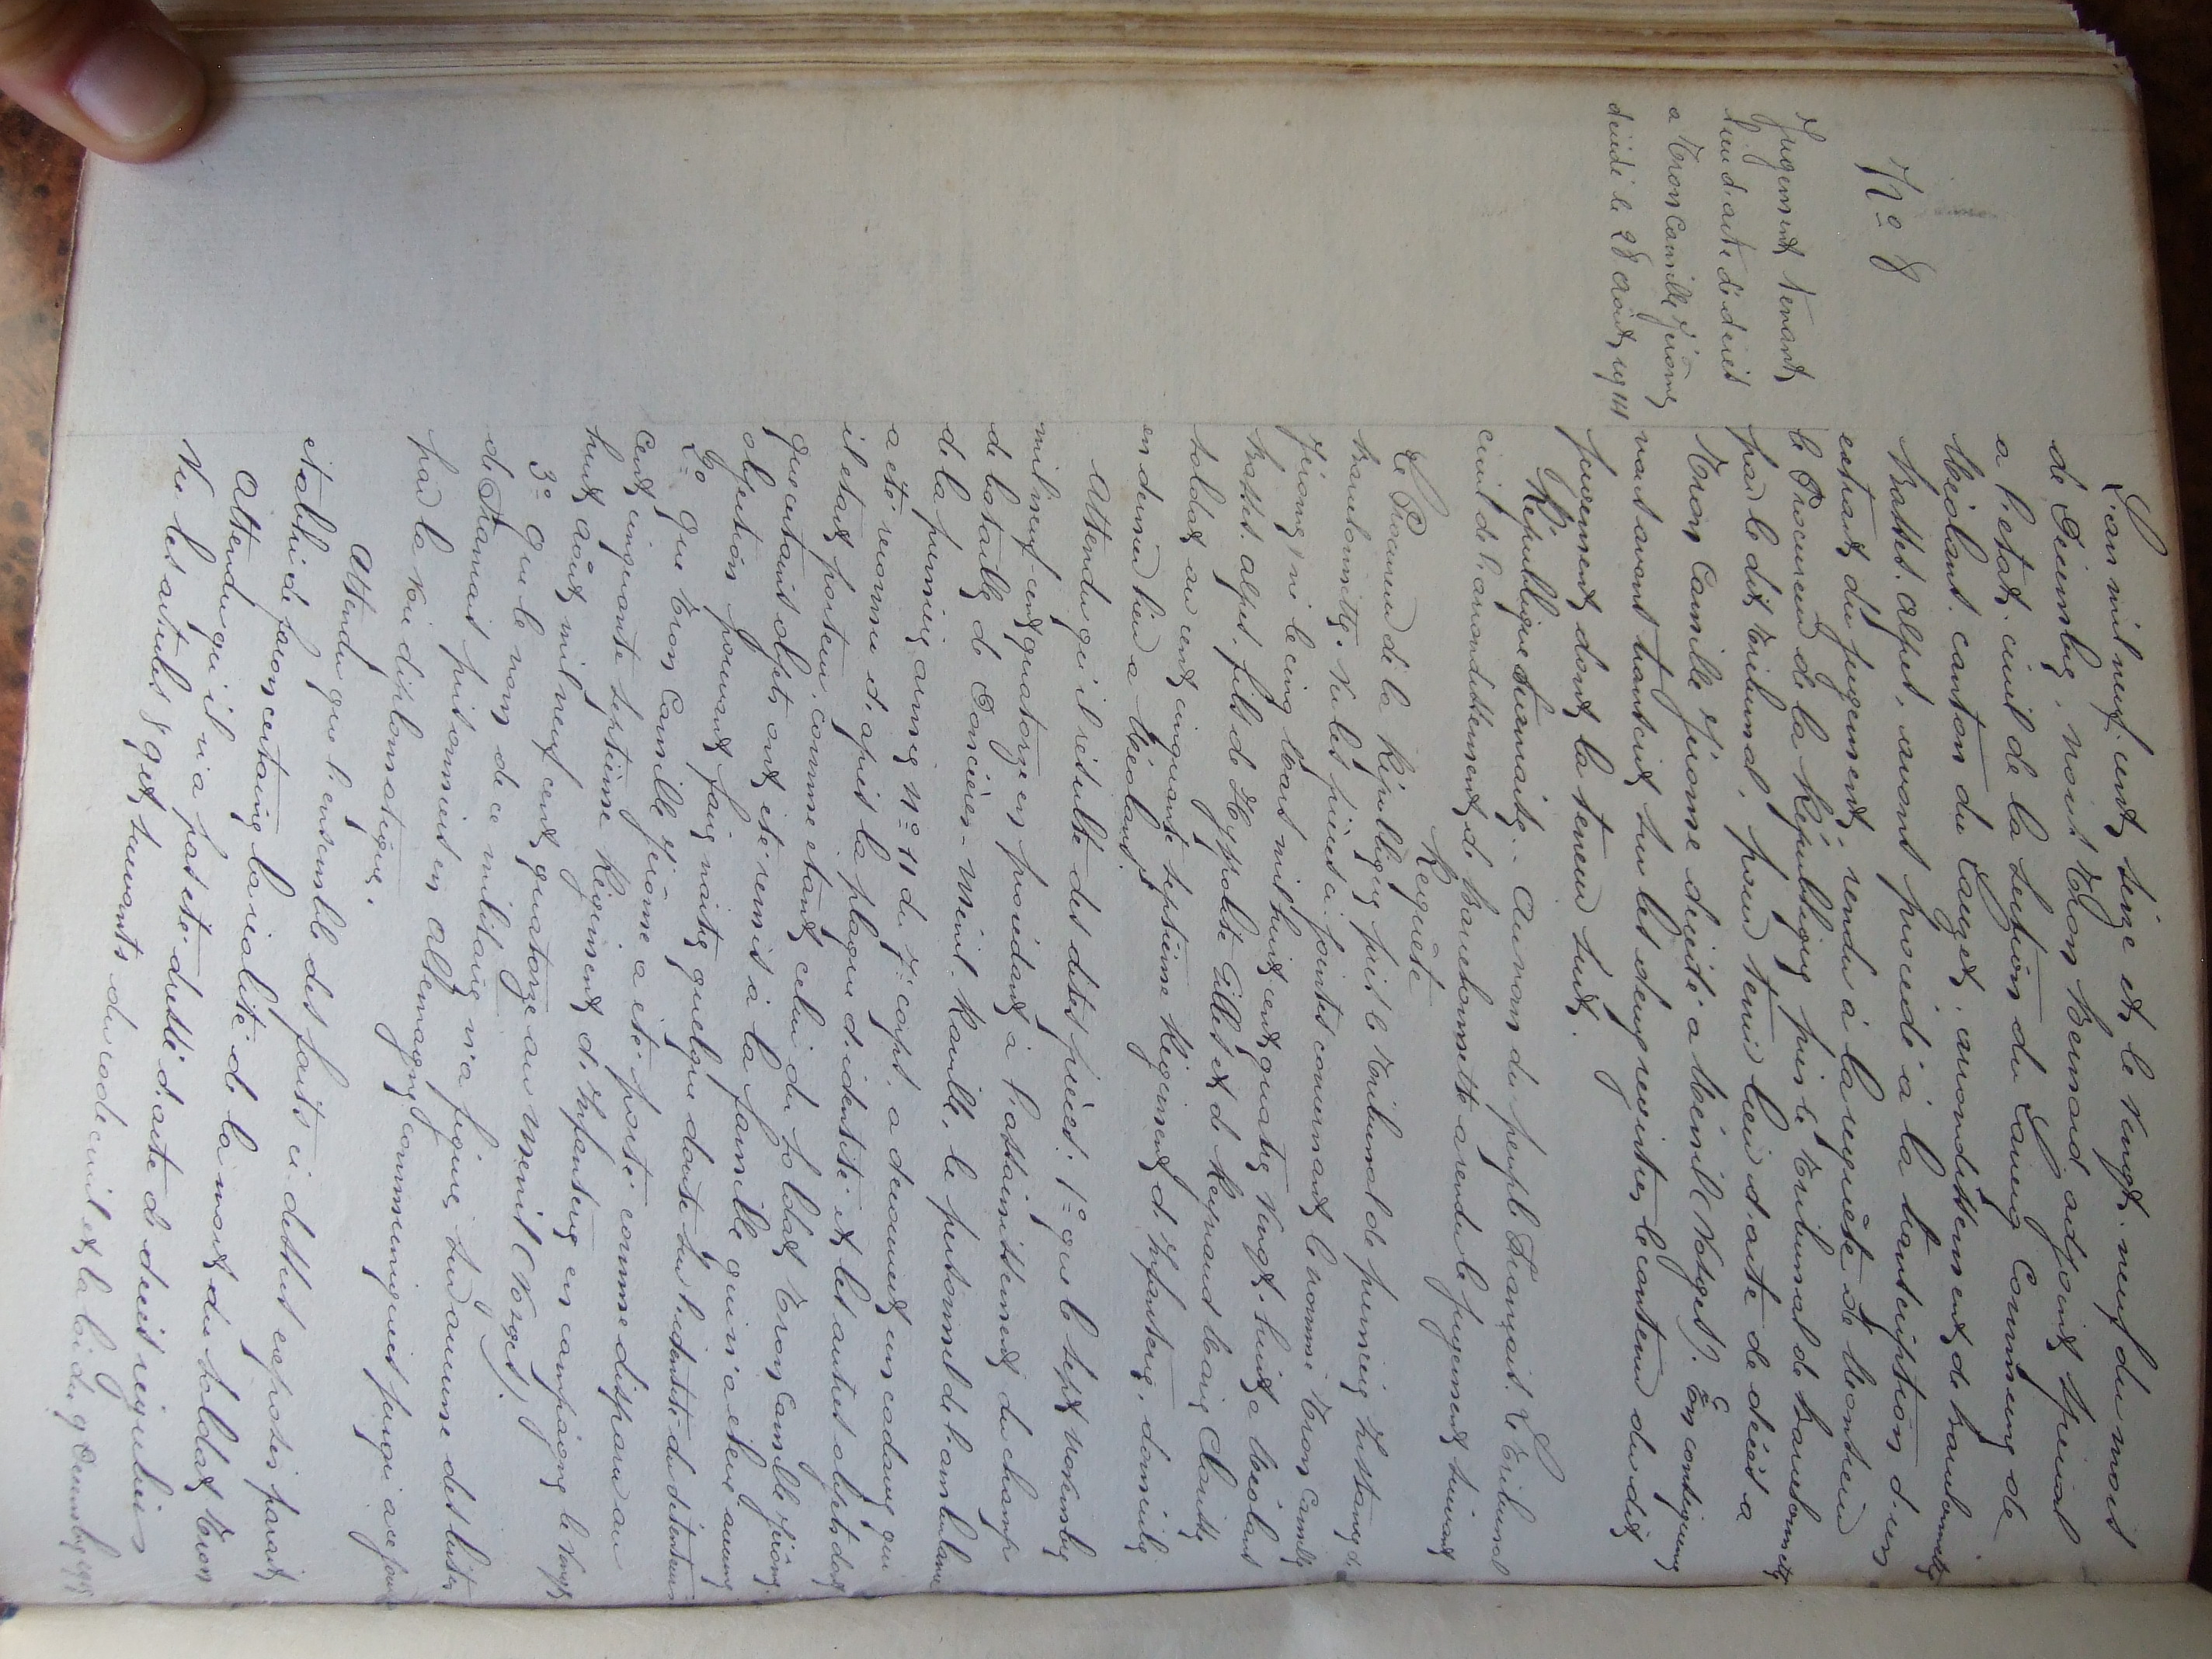 N° 8
Jugement tenant
lieu d'acte de décès
a Tron Camille Jérome
décédé le 28 Août 1914
L'an mil neuf cent seize et le vingt-neuf du mois
de Décembre, nous Tron Bernard adjoint spécial
a l'etat-civil de la section du Sauze Commune de
Méolans canton du Lauzet, arrondissement de Barcelonnette
Basses-Alpes, avons procédé à la transcription d'un
extrait du jugement, rendu à la requête de Monsieur
le Procureur de la République près le Tribunal de Barcelonnette
par le dit Tribunal, pour tenir lieu d'acte de décès a
Tron Camille Jérome décédé a Ménil (Vosges). En conséquence
nous avons transcrit sur les deux registres le contenu du dit
jugement dont la teneur suit.
République Française.. Au nom du peuple Français. Le Tribunal
civil de l'arrondissement de Barcelonnette a rendu le jugement suivant
Requête
Le Procureur de la République près le Tribunal de première Instance de
Barcelonnette. Vu les pièces ci-jointes concernant le nommé Tron Camille
Jérome, né le cinq Mars mil huit cent quatre vingt-huit a Méolans
Basses-Alpes, fils de Hyppolite Gilles et de Reynaud Marie Claire
soldat au cent cinquante septième Régiment d'Infanterie, domicilié
en dernier lieu a Méolans.
Attendu qu'il résulte des dites pièces: 1° que le sept novembre
mil neuf cent quatorze en procédant à l'assainissement du champ
de bataille de Doncières-Ménil Ranville, le personnel de l'ambulance
de la première armée N° 11 du 7e corps, a découvert un cadavre qui
a été reconnu d'après la plaque d'identité et les autres objets dont
il etait porteur comme étant celui du soldat Tron Camille Jérome
que certains objets ont été remis a la famille qui n'a élevé aucune
objection pouvant faire naitre quelque doute sur l'identité du détenteur
2° que Tron Camille Jérome a été porté comme disparu au
cent cinquante septième Régiment d'Infanterie en campagne le vingt
huit août mil neuf cent quatorze au Menil (Vosges).
3° Que le nom de ce militaire n'a figuré sur aucune des listes
de Français prisonniers en Allemagne communiquées jusqu'a ce jour
par la voie diplomatique.
Attendu que l'ensemble des faits ci-dessus exposés parait
établir de façon certaine la réalité de la mort du soldat Tron
Attendu qu'il n'a pas été dressé d'acte de décès régulier
Vu les articles 89 et suivants du code civil et la loi du 9 Décembre 1915